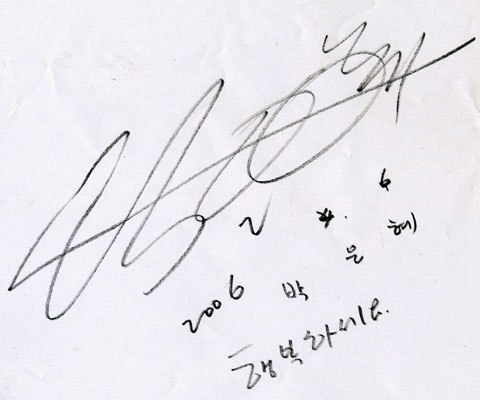 2 6
2006 박은혜
행복하세요.